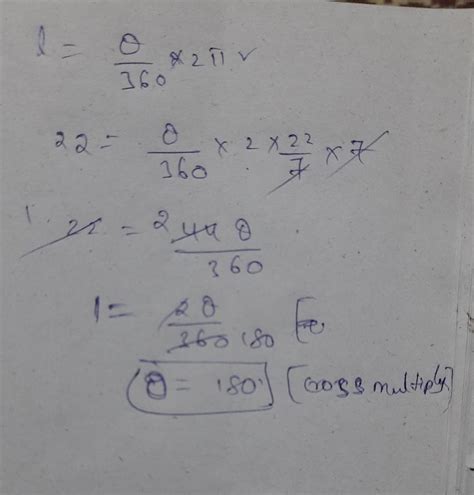 l = θ/360 × 2πr
22 = θ/360 × 2 × 22/7 × 7
1 22 = 2 44 θ/360
1 = 2θ/360 180
θ = 180° [cross multiply]